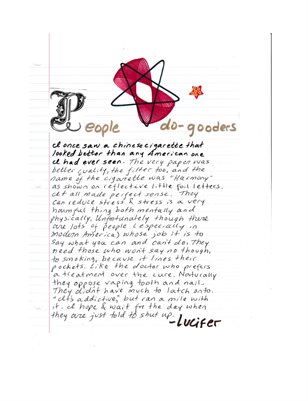 People do-gooders
I once saw a chinese cigarette that
looked better than any American one
I had ever seen. The very paper was
better quality, the filter too, and the
name of the cigarette was "Harmony"
as shown on reflective little foil letters.
It all made perfect sense. They
can reduce stress & stress is a very
harmful thing both mentally and
physically. Unfortunately though there
are lots of people (especially in
modern America) whose job it is to
say what you can and can't do. They
need those who won't say no though,
to smoking, because it lines their
pockets. Like the doctor who prefers
a treatment over the cure. Naturally
they oppose vaping tooth and nail.
They didn't have much to latch onto.
"It's addictive," but ran a mile with
it. I hope & wait for the day when
they are just told to shut up.
-Lucifer